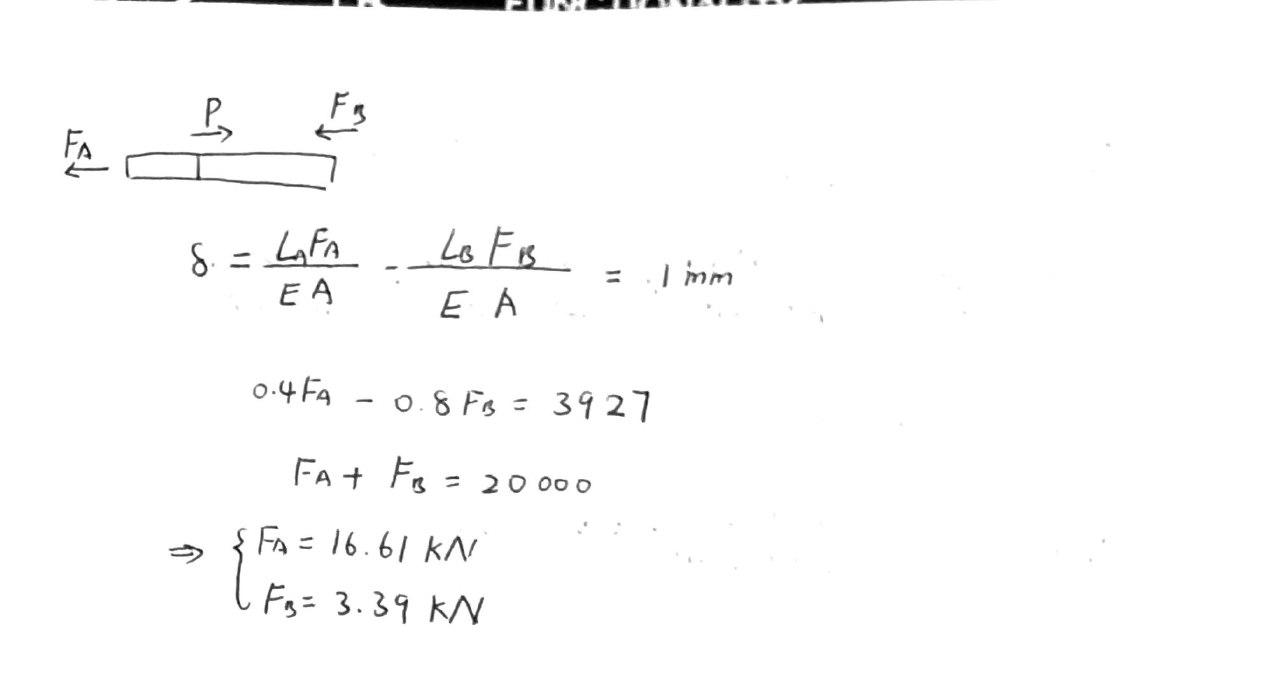 P
F_B
F_A
δ = L_A F_A / E A - L_B F_B / E A = 1 mm
0.4 F_A - 0.8 F_B = 3927
F_A + F_B = 20000
⇒ { F_A = 16.61 kN
F_B = 3.39 kN